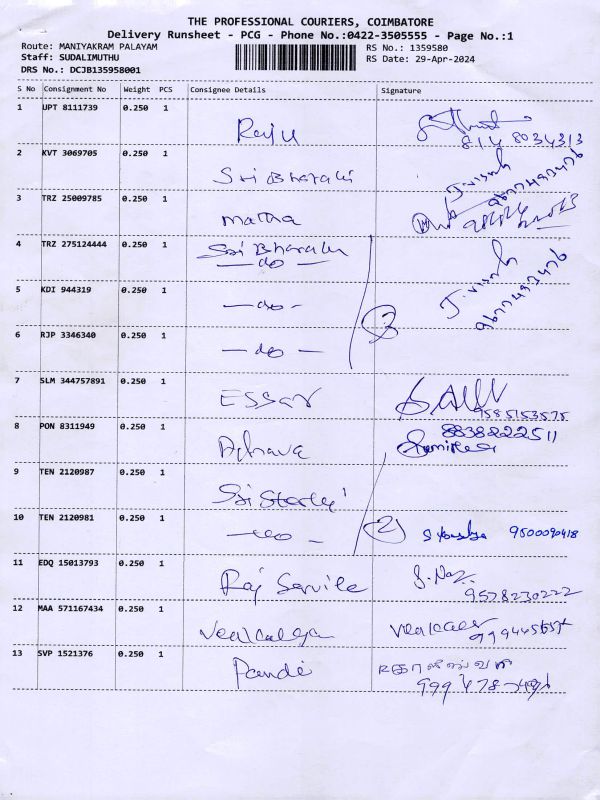 THE PROFESSIONAL COURIERS, COIMBATORE
Delivery Runsheet - PCG - Phone No.:0422-3505555 - Page No.:1
Route: MANIYAKRAM PALAYAM
RS No.: 1359580
Staff: SUDALIMUTHU
RS Date: 29-Apr-2024
DRS No.: DCJB135958001
S No Consignment No Weight PCS Consignee Details Signature
1 UPT 8111739 0.250 1 Raju
814 8034313
2 KVT 3069705 0.250 1 Sri Bharathi
9677493476
3 TRZ 25009785 0.250 1 Matha
4 TRZ 275124444 0.250 1 Sri Bharathi
—do—
5 KDI 944319 0.250 1 —do-
9677493476
3
6 RJP 3346340 0.250 1 —do—
7 SLM 344757891 0.250 1 ESSar
9585153575
8 PON 8311949 0.250 1
8838222511
9 TEN 2120987 0.250 1 Sri
10 TEN 2120981 0.250 1 2 9500090418
11 EDQ 15013793 0.250 1 Raj Service
9578230222
12 MAA 571167434 0.250 1
13 SVP 1521376 0.250 1 Pandi